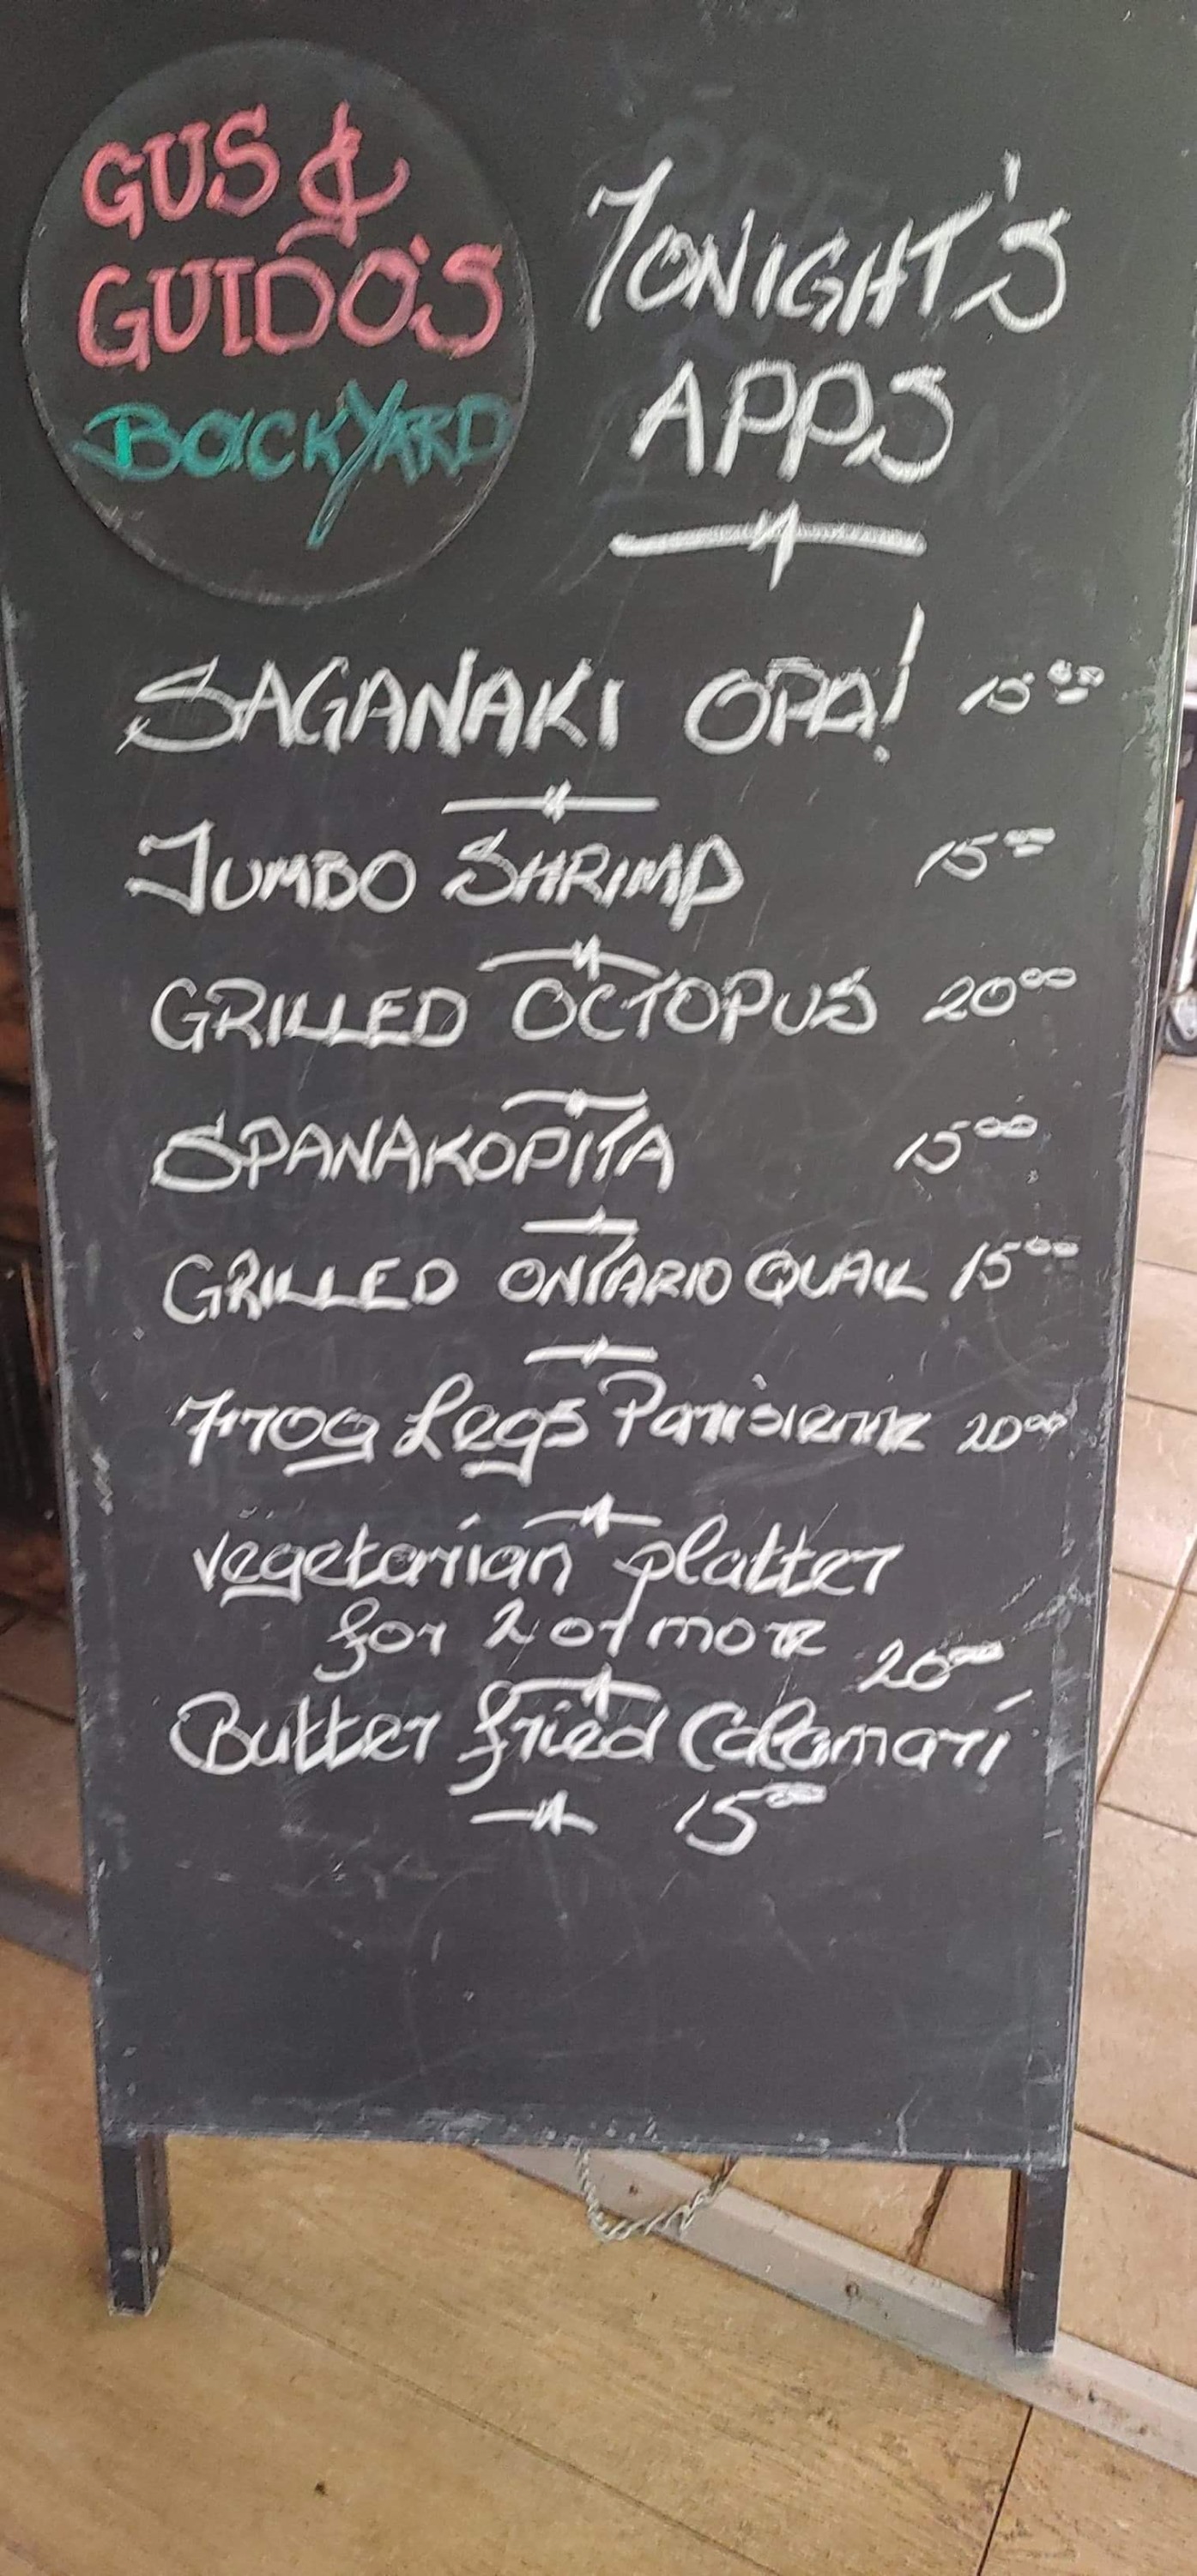 GUS &
GUIDO'S
BACKYARD
TONIGHT'S
APPS
SAGANAKI OPA! 15⁰⁰
JUMBO SHRIMP 15⁰⁰
GRILLED OCTOPUS 20⁰⁰
SPANAKOPITA 15⁰⁰
GRILLED ONTARIO QUAIL 15⁰⁰
Frog Legs Parisienne 20⁰⁰
vegetarian platter
for 2 or more 20⁰⁰
Butter fried Calamari
15⁰⁰